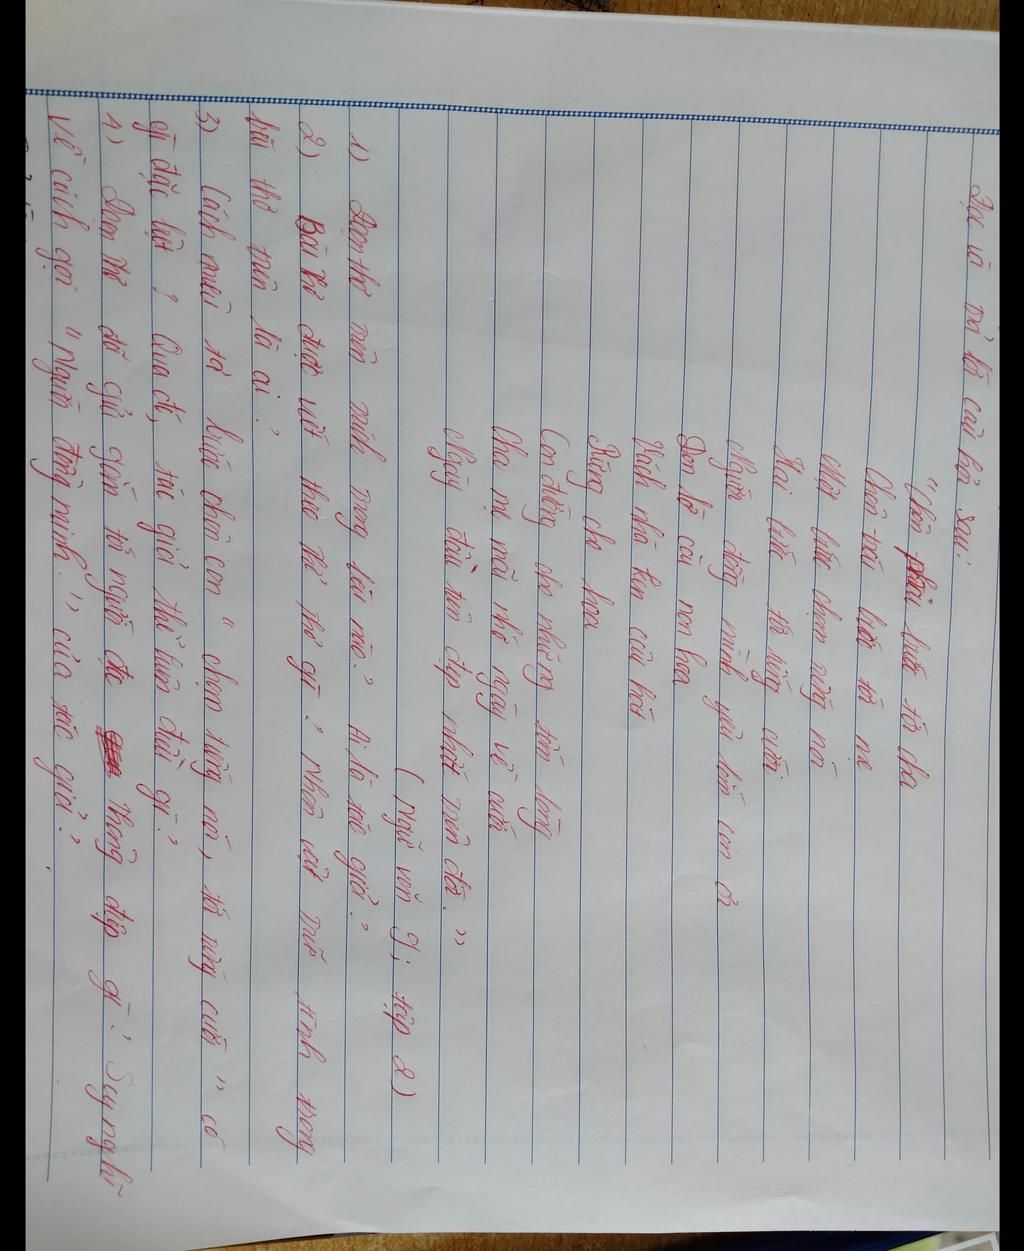 Đọc và trả lời câu hỏi sau:
"Chân phải bước tới cha
Chân trái bước tới mẹ
Một bước chạm tiếng nói
Hai bước tới tiếng cười
Người đồng mình yêu lắm con ơi
Đan lờ cài nan hoa
Vách nhà ken câu hát
Rừng cho hoa
Con đường cho những tấm lòng
Cha mẹ mãi nhớ ngày về cưới
Ngày đầu tiên đẹp nhất trên đời."
(Ngữ văn 9; tập 2)
1) Đoạn thơ trên trích trong bài nào? Ai là tác giả?
2) Bài thơ được viết theo thể thơ gì? Nhân vật trữ tình trong
bài thơ trên là ai?
3) Cách miêu tả bước chân con "chạm tiếng nói, tới tiếng cười" có
gì đặc biệt? Qua đó, tác giả thể hiện điều gì?
4) Đoạn thơ đã gửi gắm tới người đọc thông điệp gì? Suy nghĩ
về cách gọi "Người đồng mình." của tác giả?